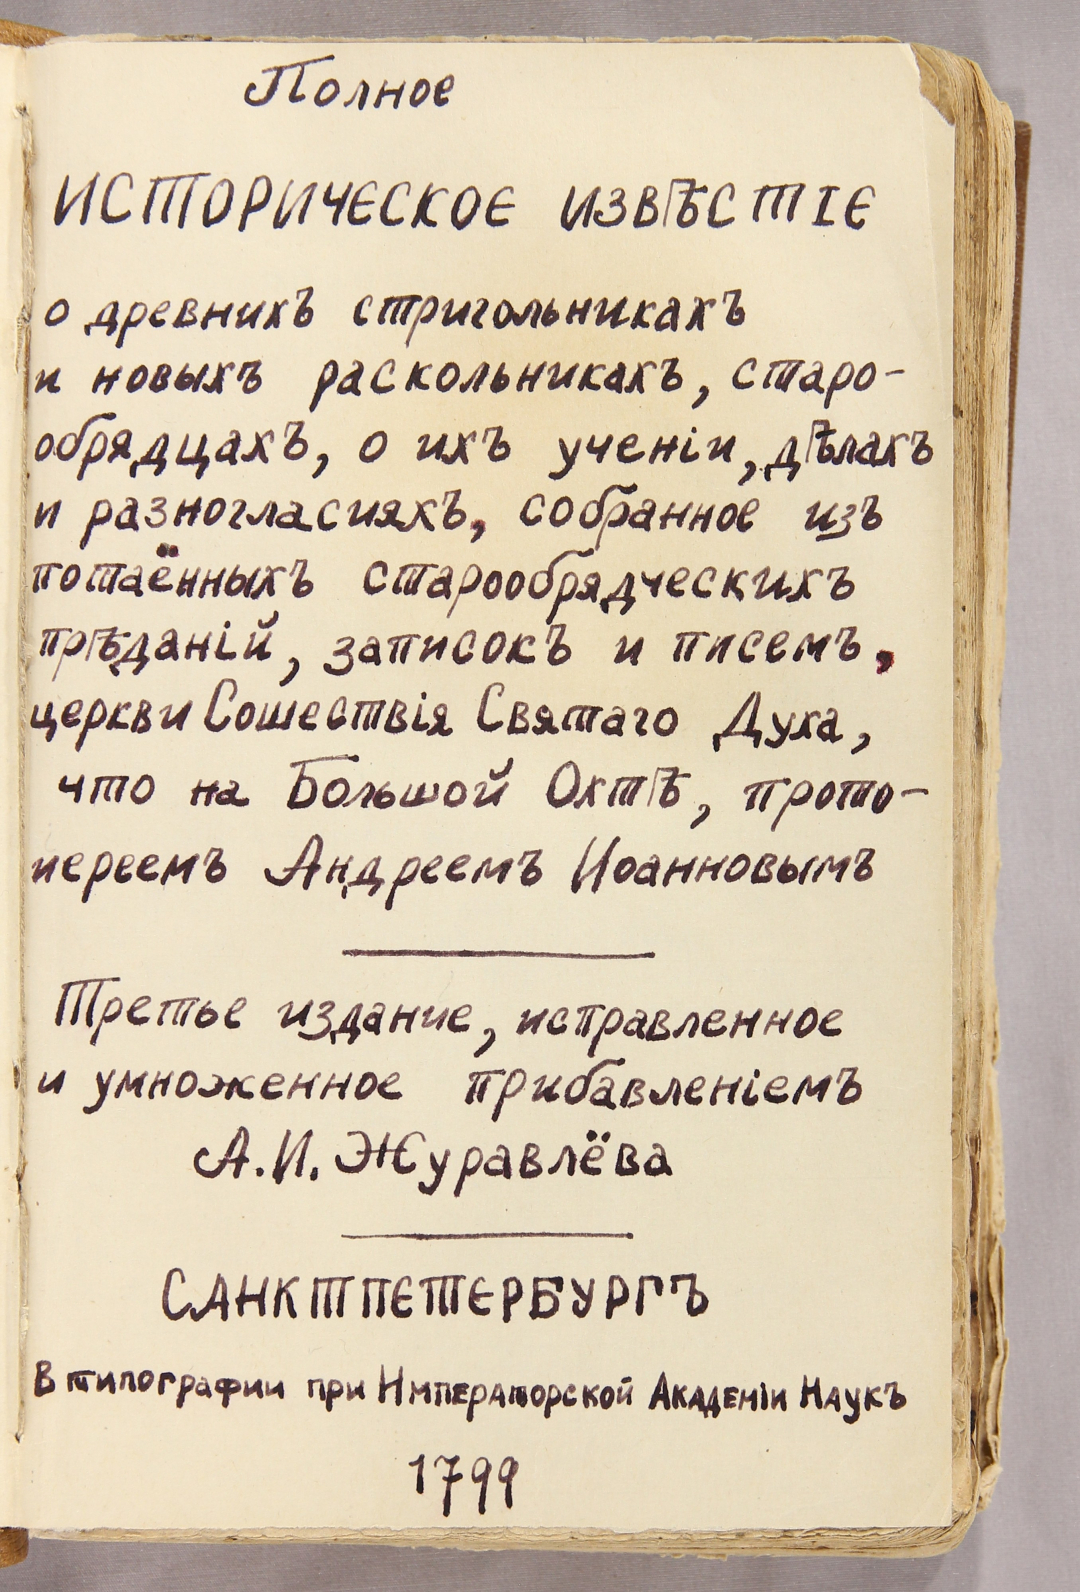 Полное
ИСТОРИЧЕСКОЕ ИЗВѢСТІЕ
о древнихъ стригольникахъ
и новыхъ раскольникахъ, старо-
обрядцахъ, о ихъ ученіи, дѣлахъ
и разногласияхъ, собранное изъ
потаённыхъ старообрядческихъ
прѣданій, записокъ и писемъ,
церкви Сошествія Святаго Духа,
что на Большой Охтѣ, прото-
иереемъ Андреемъ Иоанновымъ
Третье издание, исправленное
и умноженное прибавленіемъ
А.И. Журавлёва
САНКТПЕТЕРБУРГЪ
В типографии при Императорской Академіи Наукъ
1799